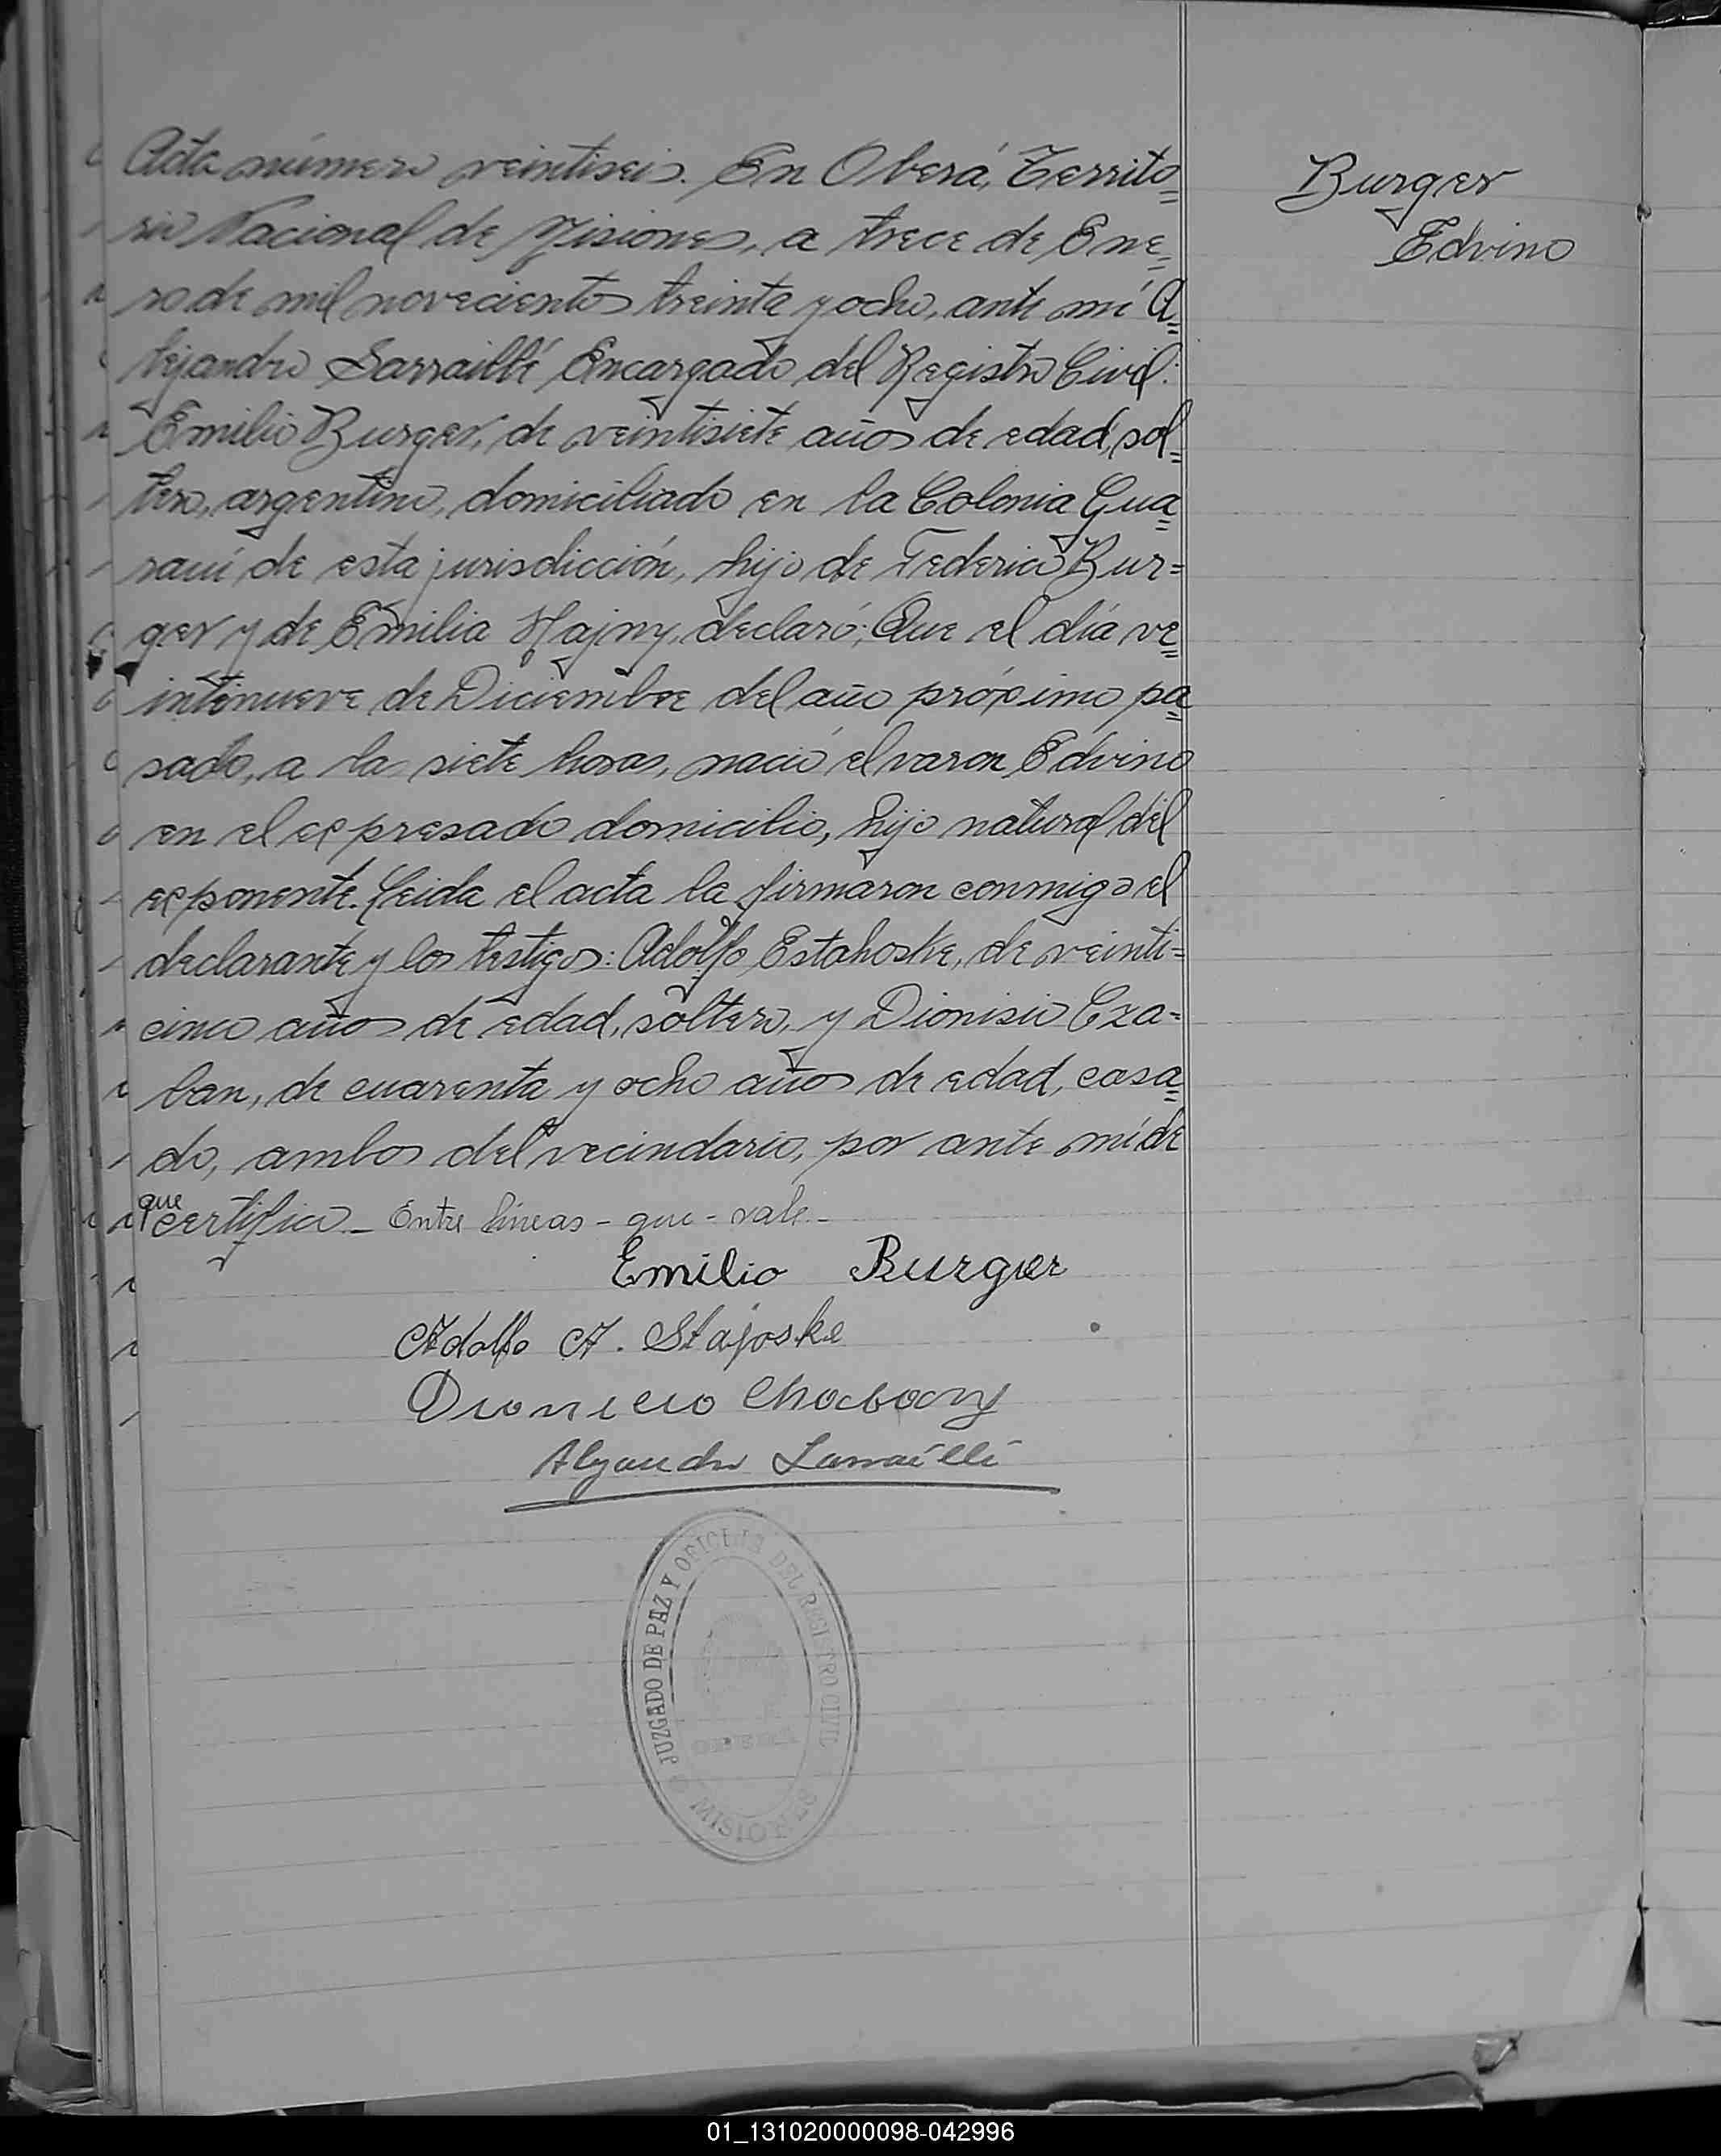 Acta número veintiseis. En Oberá, Territo=
rio Nacional de Misiones, a trece de Ene=
ro de mil novecientos treinta y ocho, ante mí A=
lejandro Sarraillé Encargado del Registro Civil:
Emilio Burger, de veintisiete años de edad, sol=
tero, argentino, domiciliado en la Colonia Gua=
raní de esta jurisdicción, hijo de Federico Bur=
ger y de Emilia Hajny, declaró: Que el día ve=
intinueve de Diciembre del año próximo pa=
sado, a la siete horas, nació el varon Edvino
en el expresado domicilio, hijo natural del
exponente. Leida el acta la firmaron conmigo el
declarante y los testigos: Adolfo Estahoske, de veinti=
cinco años de edad, soltero, y Dionisio Cza=
ban, de cuarenta y ocho años de edad, casa=
do, ambos del vecindario, por ante mí de
que
certifico.- Entre líneas - que - vale.-
Emilio Burger
Adolfo A. Stajoske
Dionicio
Alejandro Sarraillé
JUZGADO DE PAZ Y OFICINA DEL REGISTRO CIVIL
MISIONES
Burger
Edvino
01_131020000098-042996